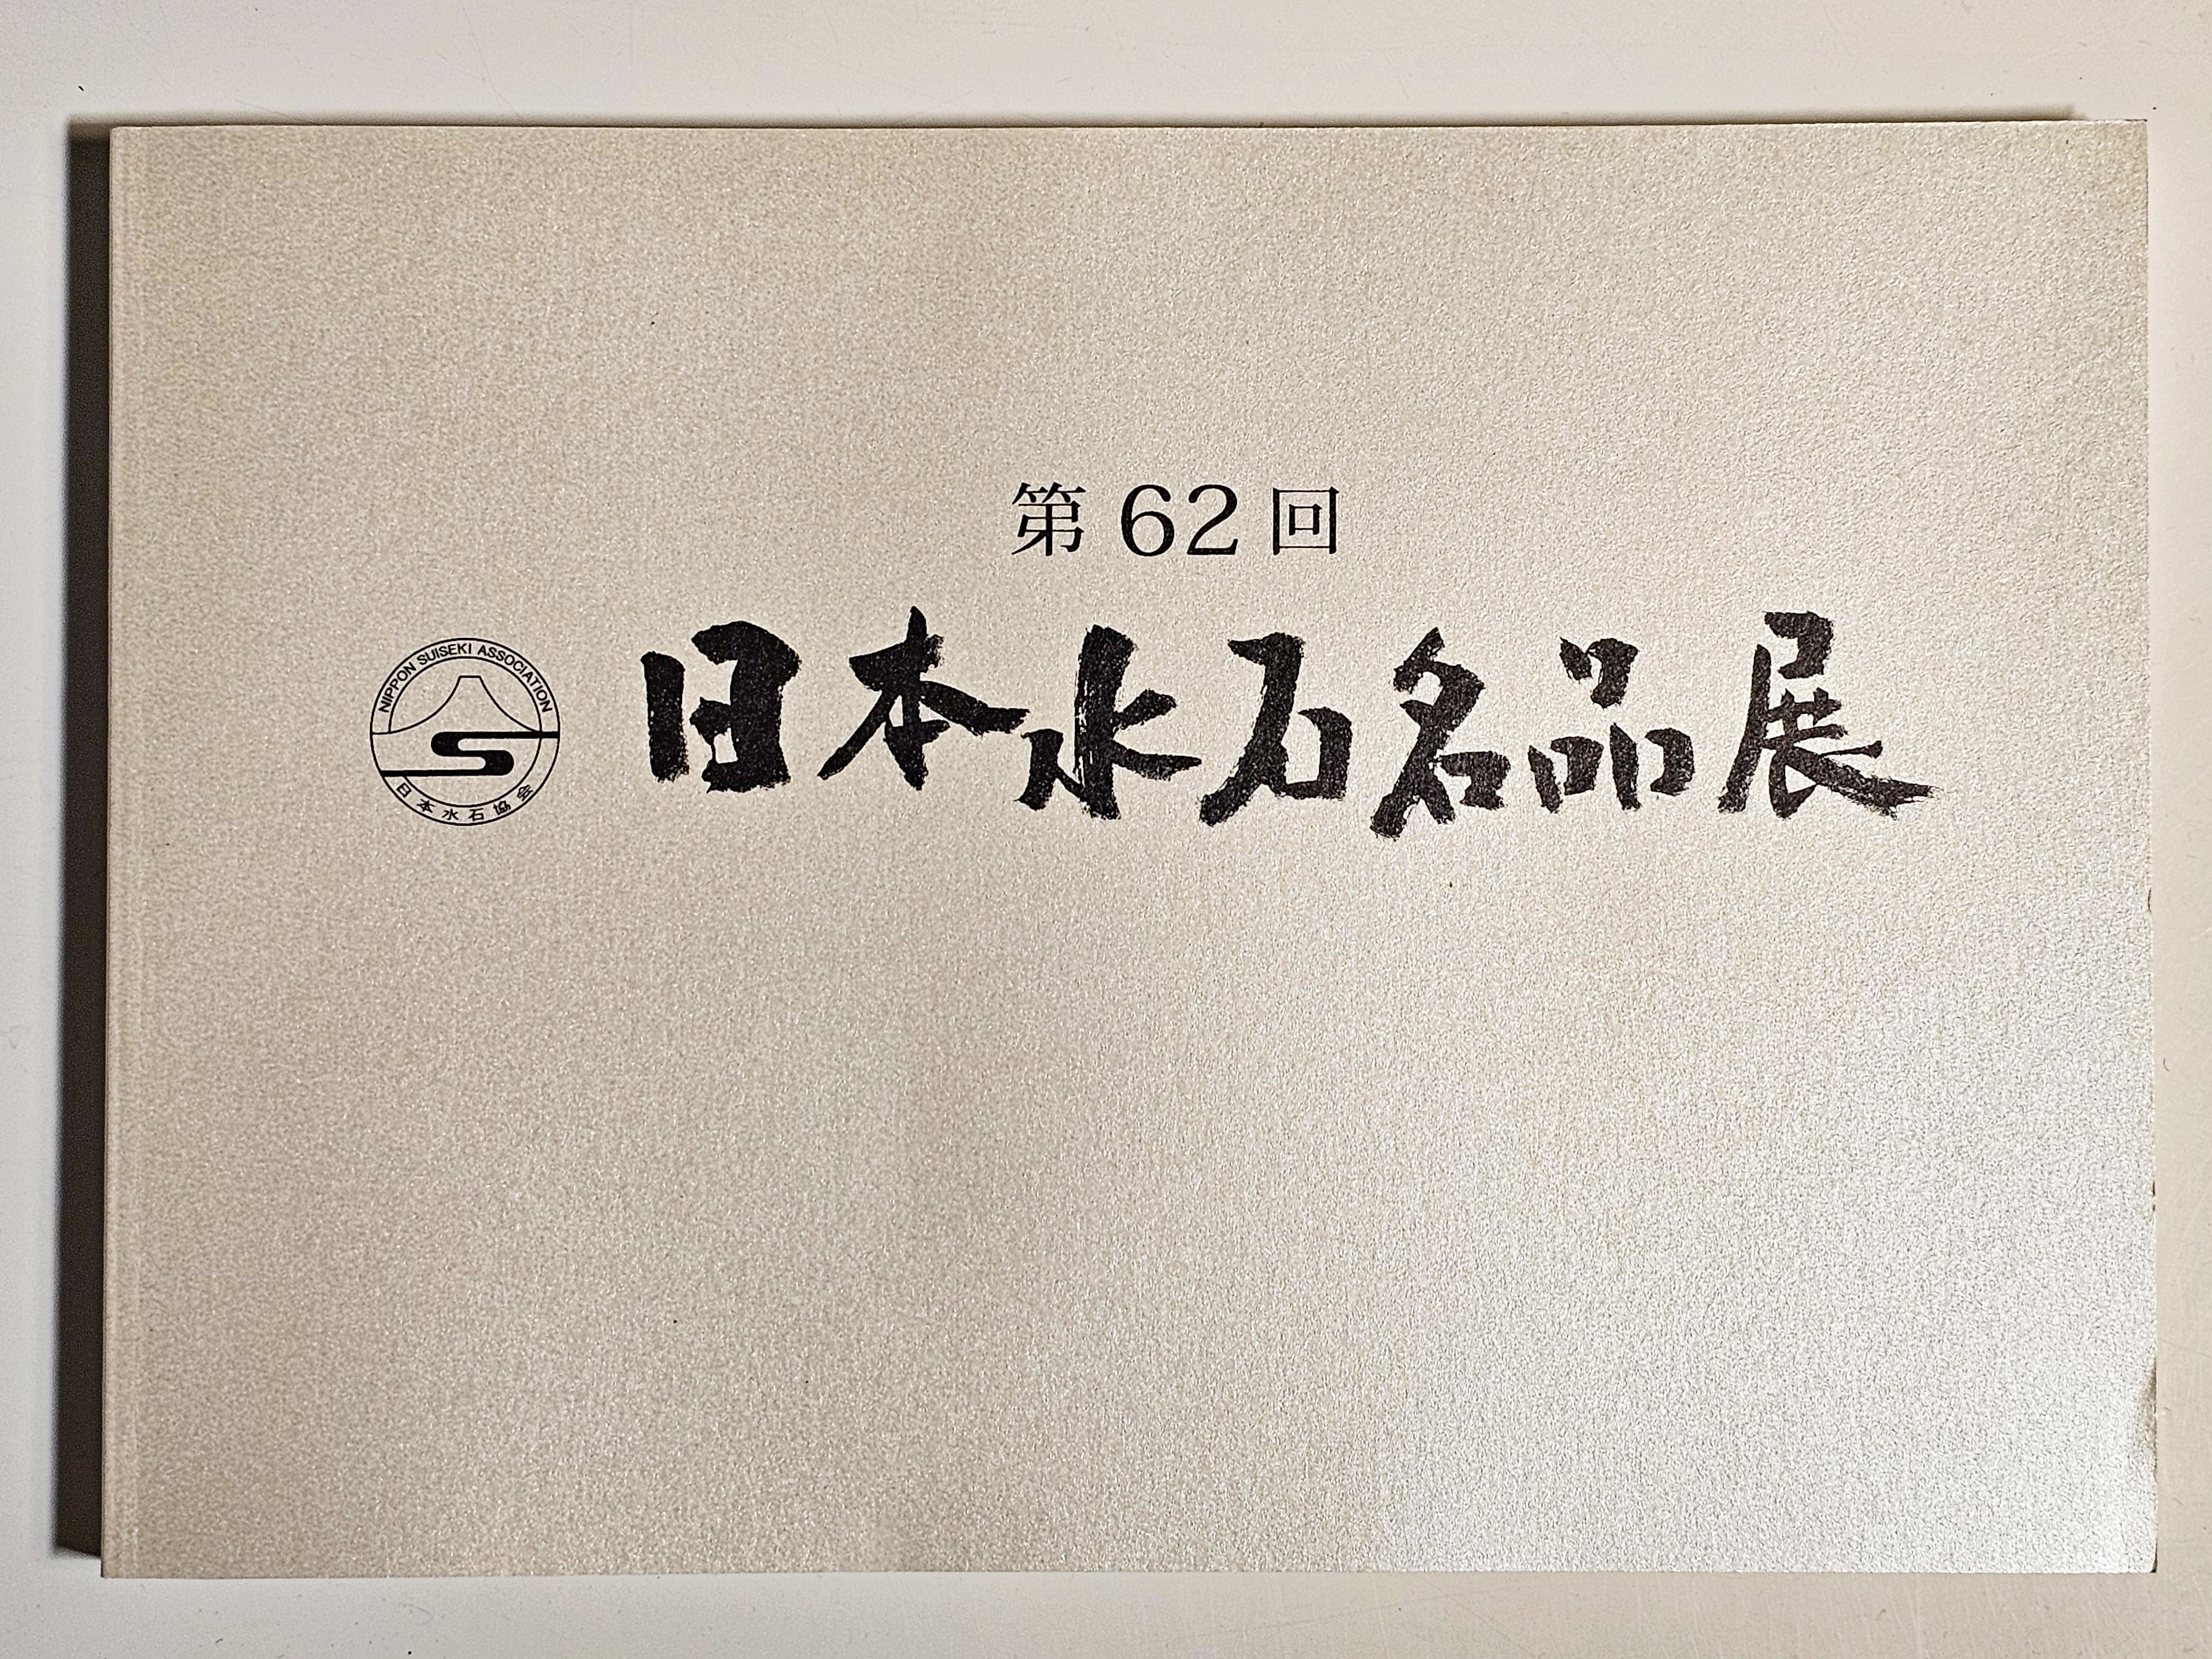 第62回
NIPPON SUISEKI ASSOCIATION
日本水石協会
日本水石名品展